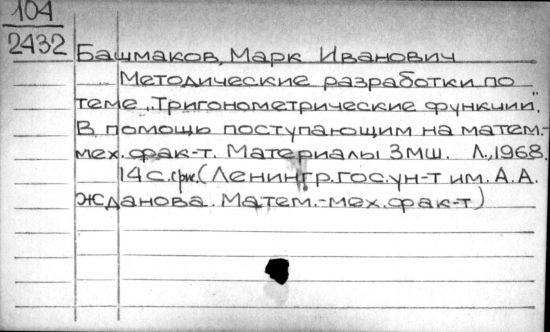 104
2432
Башмаков, Марк Иванович
Методические разработки по
теме „Тригонометрические функции".
В помощь поступающим на матем.-
мех. фак-т. Материалы ЗМШ. Л., 1968.
14 с. (Ленингр. гос. ун-т им. А. А.
Жданова. Матем.-мех. фак-т)